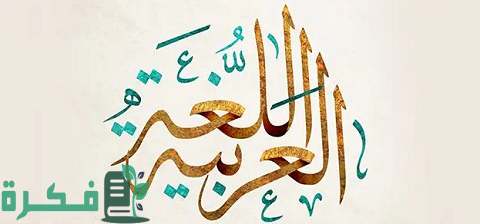 اللغة
العربية
فكرة